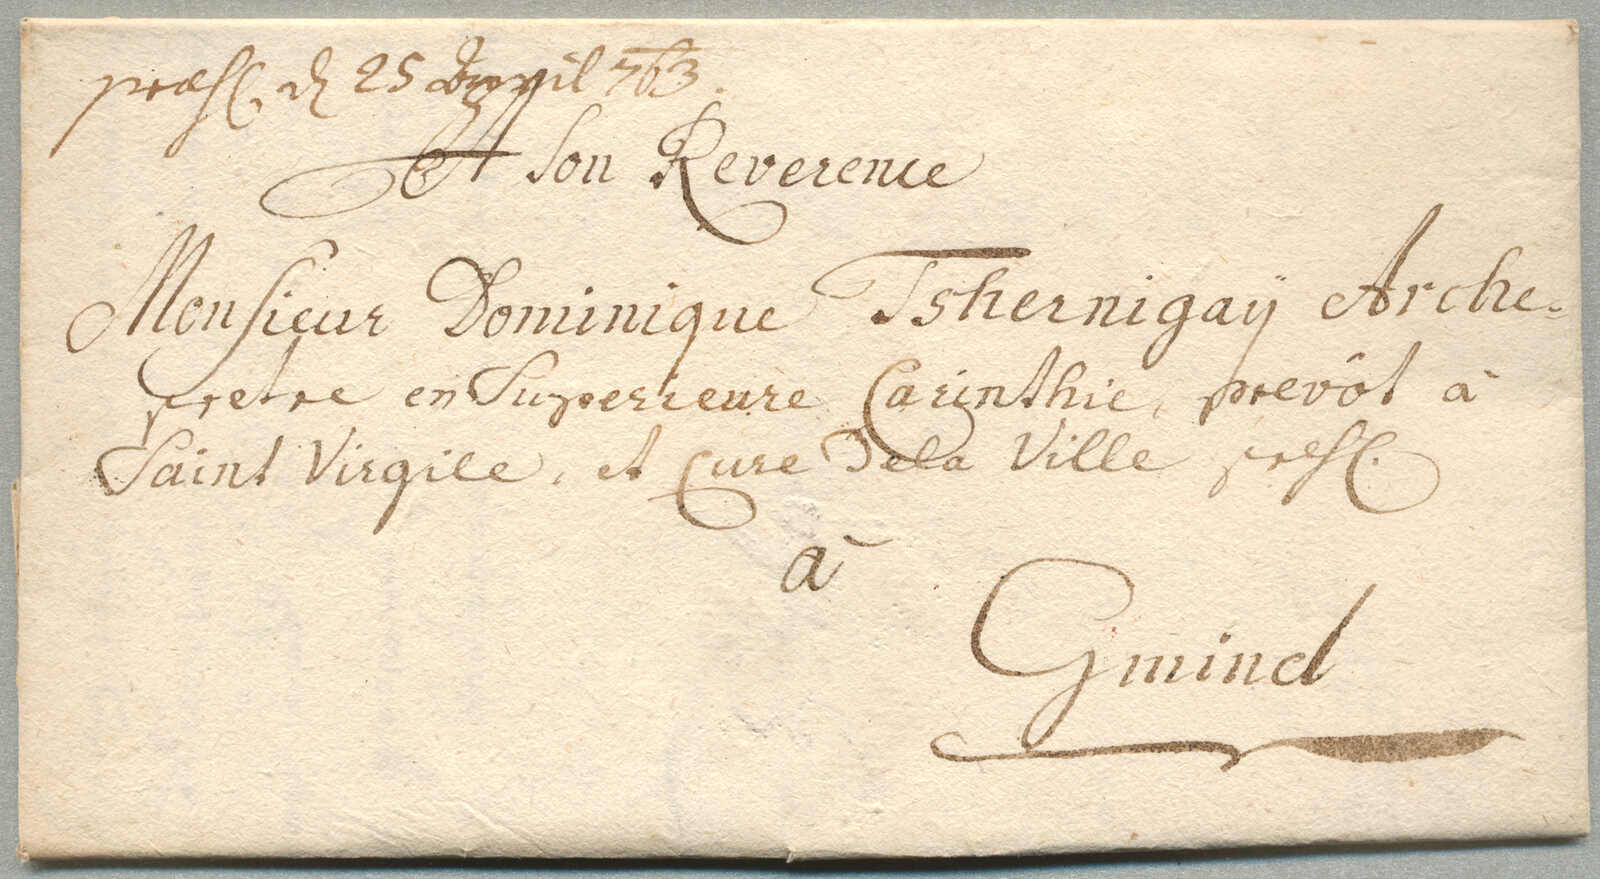 præs. d 25 April 763.
A Son Reverence
Monsieur Dominique Tshernigaÿ Arche-
pretre en Superieure Carinthie, prevôt à
Saint Virgile, et Cure dela Ville pres.
à
Gmind